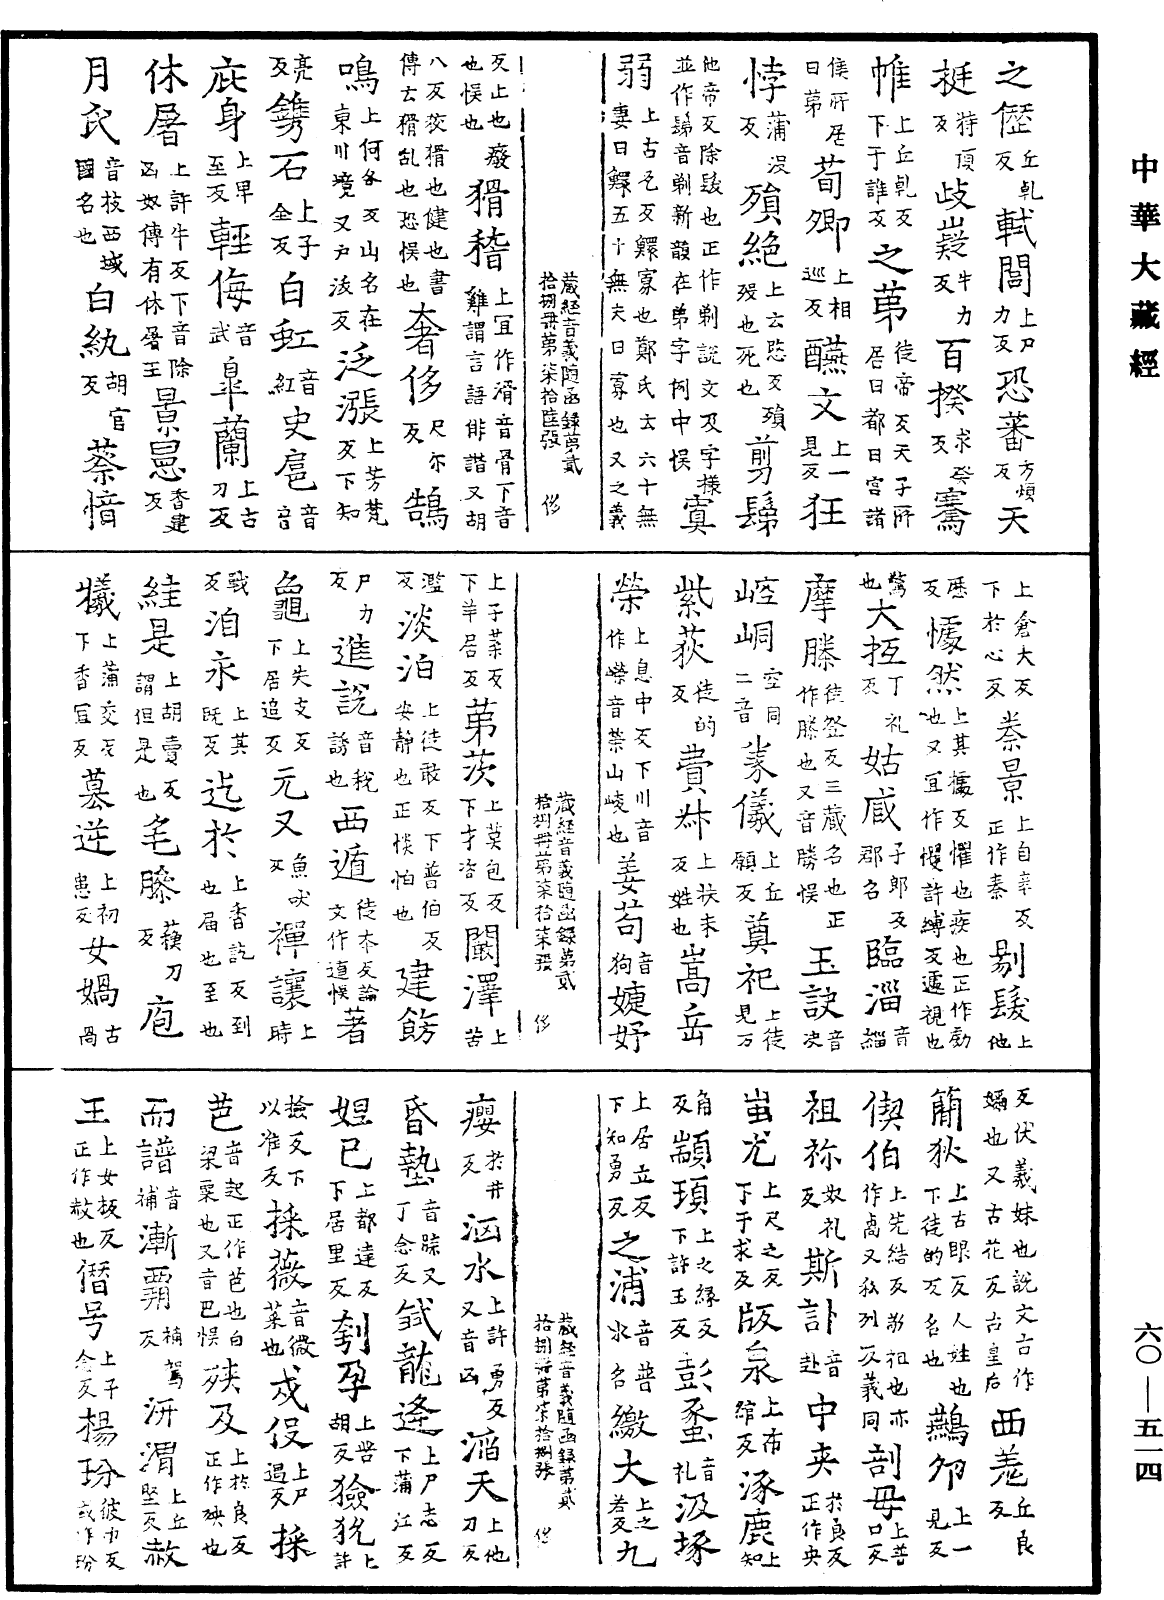 中華大藏經
之㒪丘乹反軾閭上尸力反恐蕃方煩反天
挺特頂反歧嶷牛力反百揆求癸反騫
帷上丘乹反下于誰反之苐徒帝反天子所居曰都曰宮諸
侯所居曰苐荀卿上相巡反醼文上一見反狂
悖蒲沒反殞絶上云愍反殞歿也死也剪髰
他帝反除髮也正作剃説文及字樣並作髰音剃新韻在苐字例中悮寡
弱上古瓦反鰥寡也鄭氏云六十無妻曰鰥五十無夫曰寡也又之義
藏經音義随函録第貳拾捌冊第柒拾陸張 侈
反上也悮也癈猾稽上宜作滑音骨下音雞謂言語俳諧又胡
八反狡猾也健也書傳云猾乱也恐悮也奢侈尺尒反鵠
鳴上何各反山名在東川境又戶沃反泛漲上芳梵反下知
亮反鐫石上子全反白虹音紅史扈音音
庇身上卑至反輕侮音武臯蘭上古刀反
休屠上許牛反下音除匈奴傳有休屠王景暠香建反
月氏音枝西域國名也白紈胡官反蔡愔
上倉大反下於心反㮤景上自辛反正作秦剔髮上他
歷反懅然上其㩀反懼也疾也正作勮也又宜作戄許縛反遽視也
驚也大抵丁礼反姑臧子郎反郡名臨淄音緇
摩騰徒登反三藏名也正作騰也又音勝悮玉訣音决
崆峒空同二音㒸儀上丘願反奠祀上徒見反
紫荻徒的反費𠦑上扶未反姓也嵩岳
榮上息中反下川音作嶸音榮山崚也姜苟音狗婕妤
藏經音義随函録第貳拾捌冊第柒拾柒張 侈
上子葉反下羊居反苐茨上莫包反下才咨反闞澤上苦
濫反淡泊上徒敢反下普伯反安靜也正惔怕也建餝
尸力反進説音稅誘也西遁徒本反論文作遉悮著
龜上失支反下居追反元又魚吠反禪讓上時
戰反洎永上其既反迄於上香訖反到也届也至也
絓是上胡賣反謂但是也毛𦡀蘓刀反庖
犧上蒲交反下香冝反墓逆上初患反女媧古咼
反伏羲妹也説文古作媧也又古花反古皇后西羗丘良反
簡狄上古眼反人姓也下徒的反名也鷰夘上一見反
偰伯上先結反湯祖也亦作禼又私列反義同剖母上普口反
祖祢奴礼反斯訃音赴中夹於良反正作央
蚩尤上尺之反下于求反版泉上布綰反涿鹿上知
角反顓頊上之縁反下許玉反彭蠡音礼汲塚
上居立反下知勇反之浦音普水名繳大上之若反九
藏經音義随函録第貳拾捌冊第柒拾捌張 侈
瘿於井反洶水上許勇反又音凶滔天上他刀反
昏墊音踈又丁念反弑龍逄上尸志反下蒲江反
妲已上都達反下居里反刳孕上苦胡反獫狁上許
撿反下以准反採薇音微菜也戍伇上尸過反採
芭音起正作芑也白梁粟也又音巴悮殃及上於良反正作殃也
而譜音補漸覇補駕反汧渭上丘堅反赦
王上女板反正作赧也僭号上子念反楊玢彼巾反或作玢
六〇—五一四